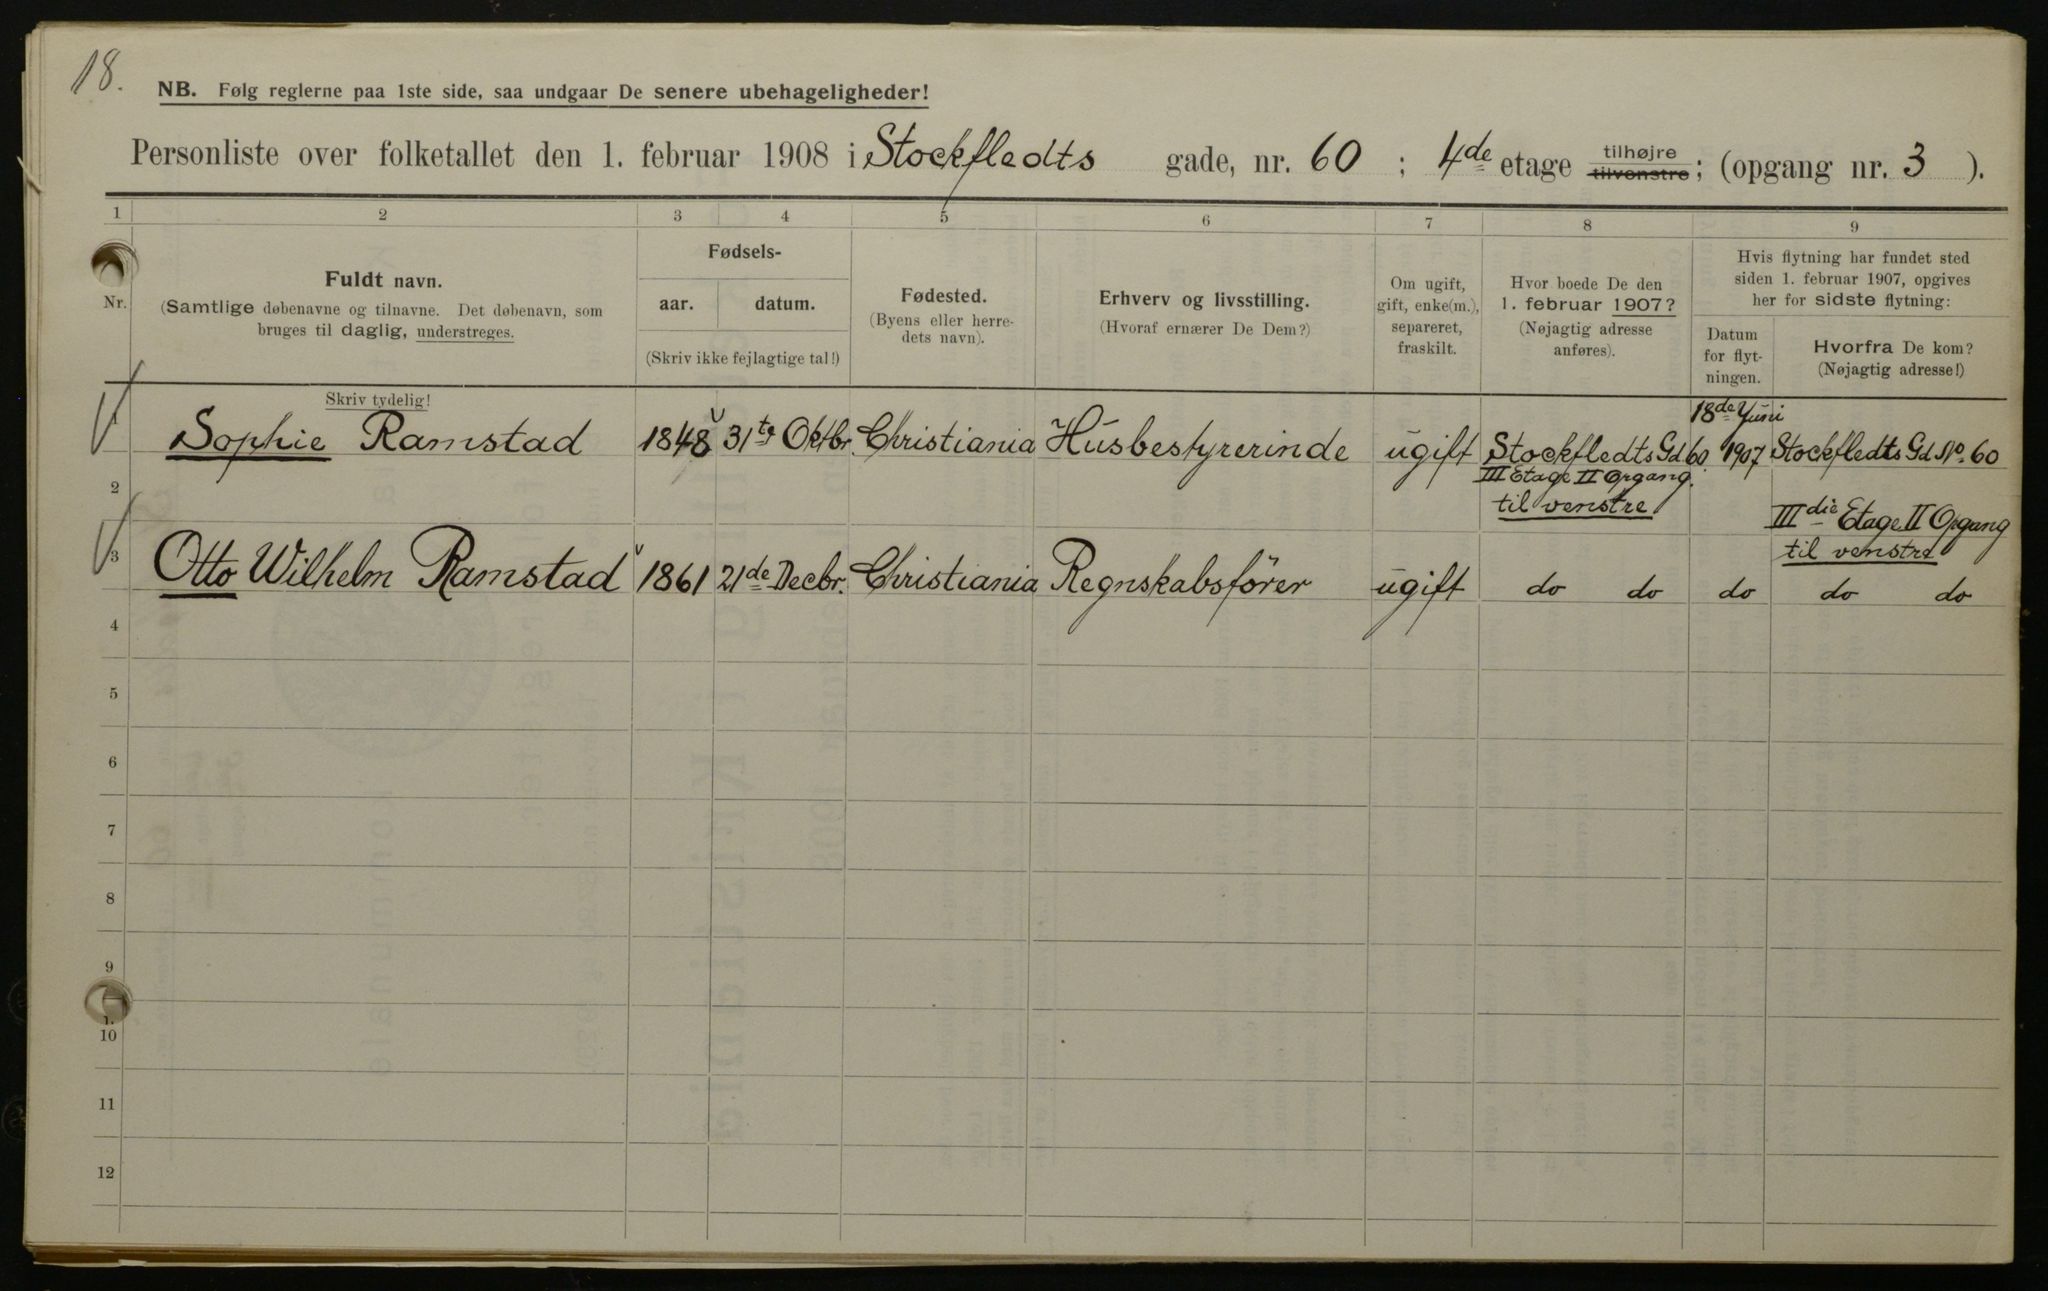 18.
NB. Følg reglerne paa 1ste side, saa undgaar De senere ubehageligheder!
Personliste over folketallet den 1. februar 1908 i Stockfledts gade, nr. 60 ; 4de etage tilhøjre tilvenstre; (opgang nr. 3 ).
1 2 3 4 5 6 7 8 9
Nr.
Fuldt navn.
(Samtlige døbenavne og tilnavne. Det døbenavn, som
bruges til daglig, understreges.
Skriv tydelig!
Fødsels-
aar. datum.
(Skriv ikke fejlagtige tal!)
Fødested.
(Byens eller herre-
dets navn).
Erhverv og livsstilling.
(Hvoraf ernærer De Dem?)
Om ugift,
gift, enke(m.),
separeret,
fraskilt.
Hvor boede De den
1. februar 1907?
(Nøjagtig adresse
anføres).
Hvis flytning har fundet sted
siden 1. februar 1907, opgives
her for sidste flytning:
Datum
for flyt-
ningen.
Hvorfra De kom?
(Nøjagtig adresse!)
1 Sophie Ramstad 1848 31te Oktbr. Christiania Husbestyrerinde ugift Stockfledts Gd 60 18de Juni 1907 Stockfledts Gd No. 60
III Etage II Opgang.
til venstre
IIIdie Etage II Opgang
til venstre
2
3 Otto Wilhelm Ramstad 1861 21de Decbr. Christiania Regnskabsfører ugift do do do do do
4
5
6
7
8
9
10
11
12